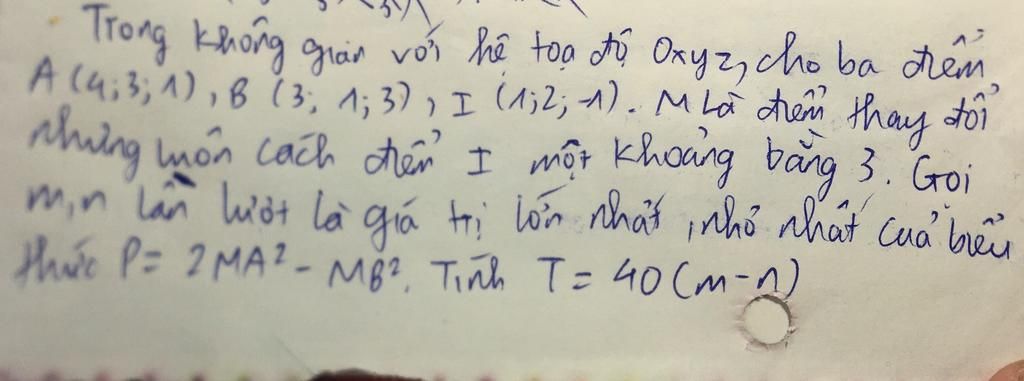 Trong không gian với hệ toạ độ Oxyz, cho ba điểm
A (4; 3; 1), B (3; 1; 3), I (1; 2; -1). M là điểm thay đổi
nhưng luôn cách điểm I một khoảng bằng 3. Gọi
m, n lần lượt là giá trị lớn nhất, nhỏ nhất của biểu
thức P = 2MA² - MB². Tính T = 40 (m - n)